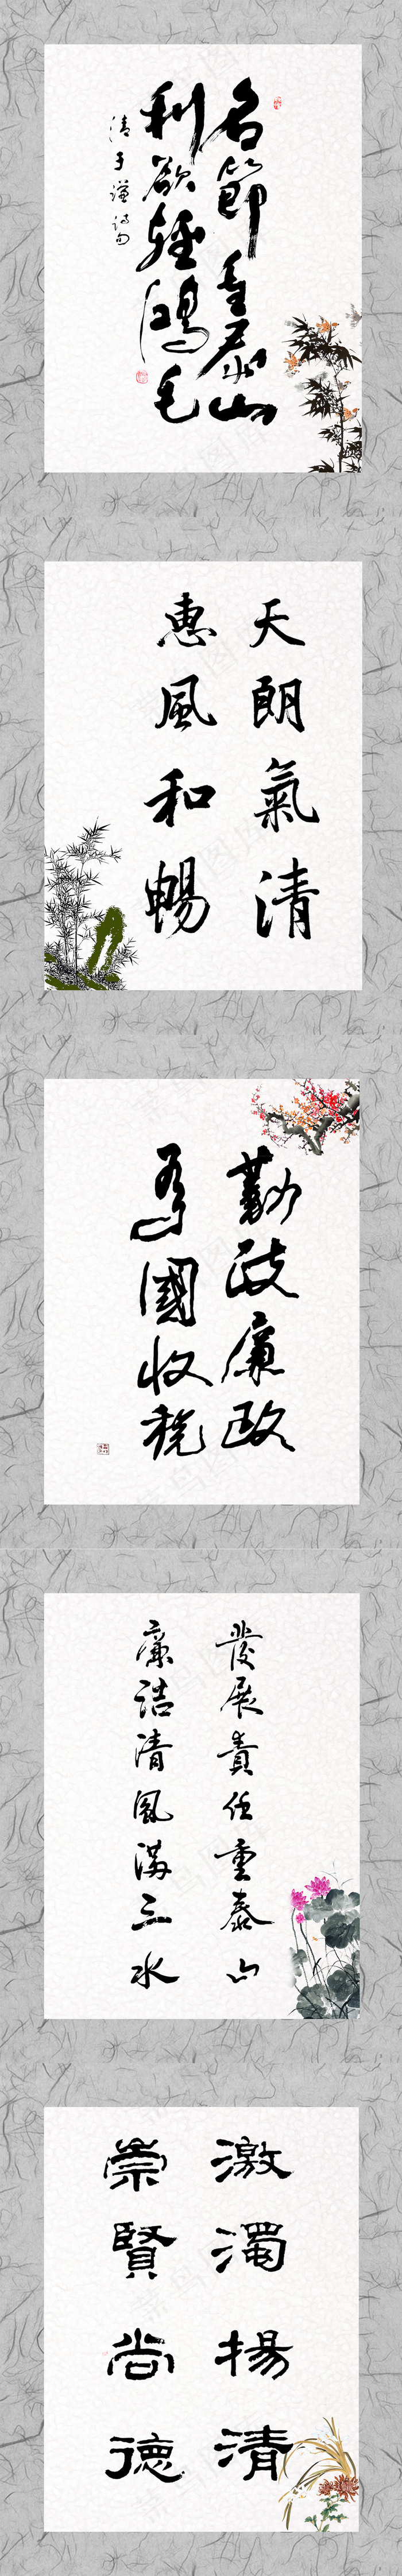 名節重泰山
利欲輕鴻毛
清于謙詩句
天朗氣清
惠風和暢
勤政廉政
為國收稅
發展責任重泰山
廉洁清風滿三水
激濁揚清
崇賢尚德